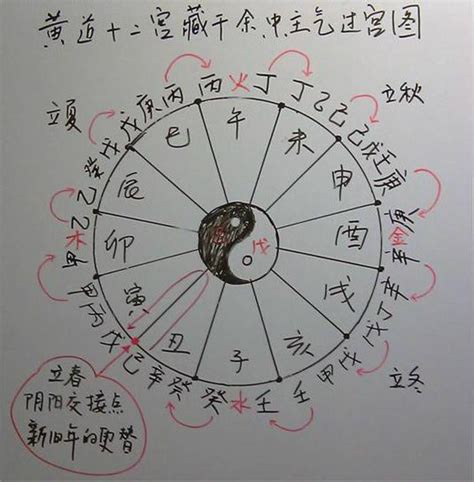 黄道十二宫藏干余中主气过宫图
立夏
立秋
立冬
戊庚丙
丙火丁
丁乙己
己戊壬庚
金
辛
辛丁戊
戊甲壬
壬水癸
癸辛己
戊丙甲
甲木乙
乙癸戊
巳
午
未
申
酉
戌
亥
子
丑
寅
卯
辰
戊
立春
阴阳交接点
新旧年的更替